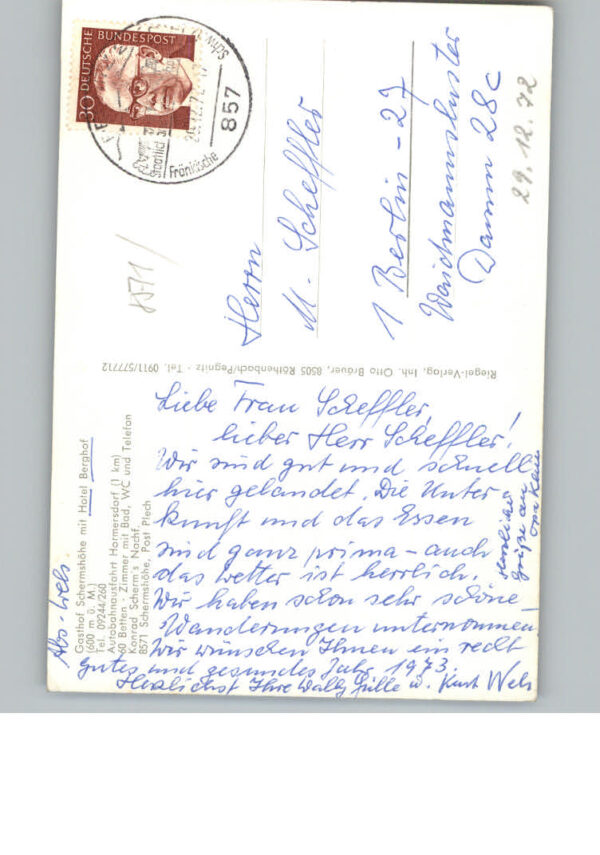 30 DEUTSCHE
BUNDESPOST
857
Fränkische
Herrn
M. Scheffler
1 Berlin - 27
Waidmannsluster
Damm 28c
29.12.72
8571/
Riegel-Verlag, Inh. Otto Bräuer, 8505 Röthenbach/Pegnitz - Tel. 0911/577712
Gasthof Schermshöhe mit Hotel Berghof
(600 m ü. M.)
Tel. 09244/260
Autobahnausfahrt Hormersdorf (1 km)
60 Betten - Zimmer mit Bad, WC und Telefon
Konrad Scherm's Nachf.
8571 Schermshöhe, Post Plech
Abs. Wels
Liebe Frau Scheffler,
lieber Herr Scheffler!
Wir sind gut und schnell
hier gelandet. Die Unter
kunft und das Essen
sind ganz prima - auch
das Wetter ist herrlich.
Wir haben schon sehr schöne
Wanderungen unternommen
Wir wünschen Ihnen ein recht
gutes und gesundes Jahr 1973.
Herzlichst Ihre Wally Hülle u. Kurt Wels
Herzliche
Grüße an